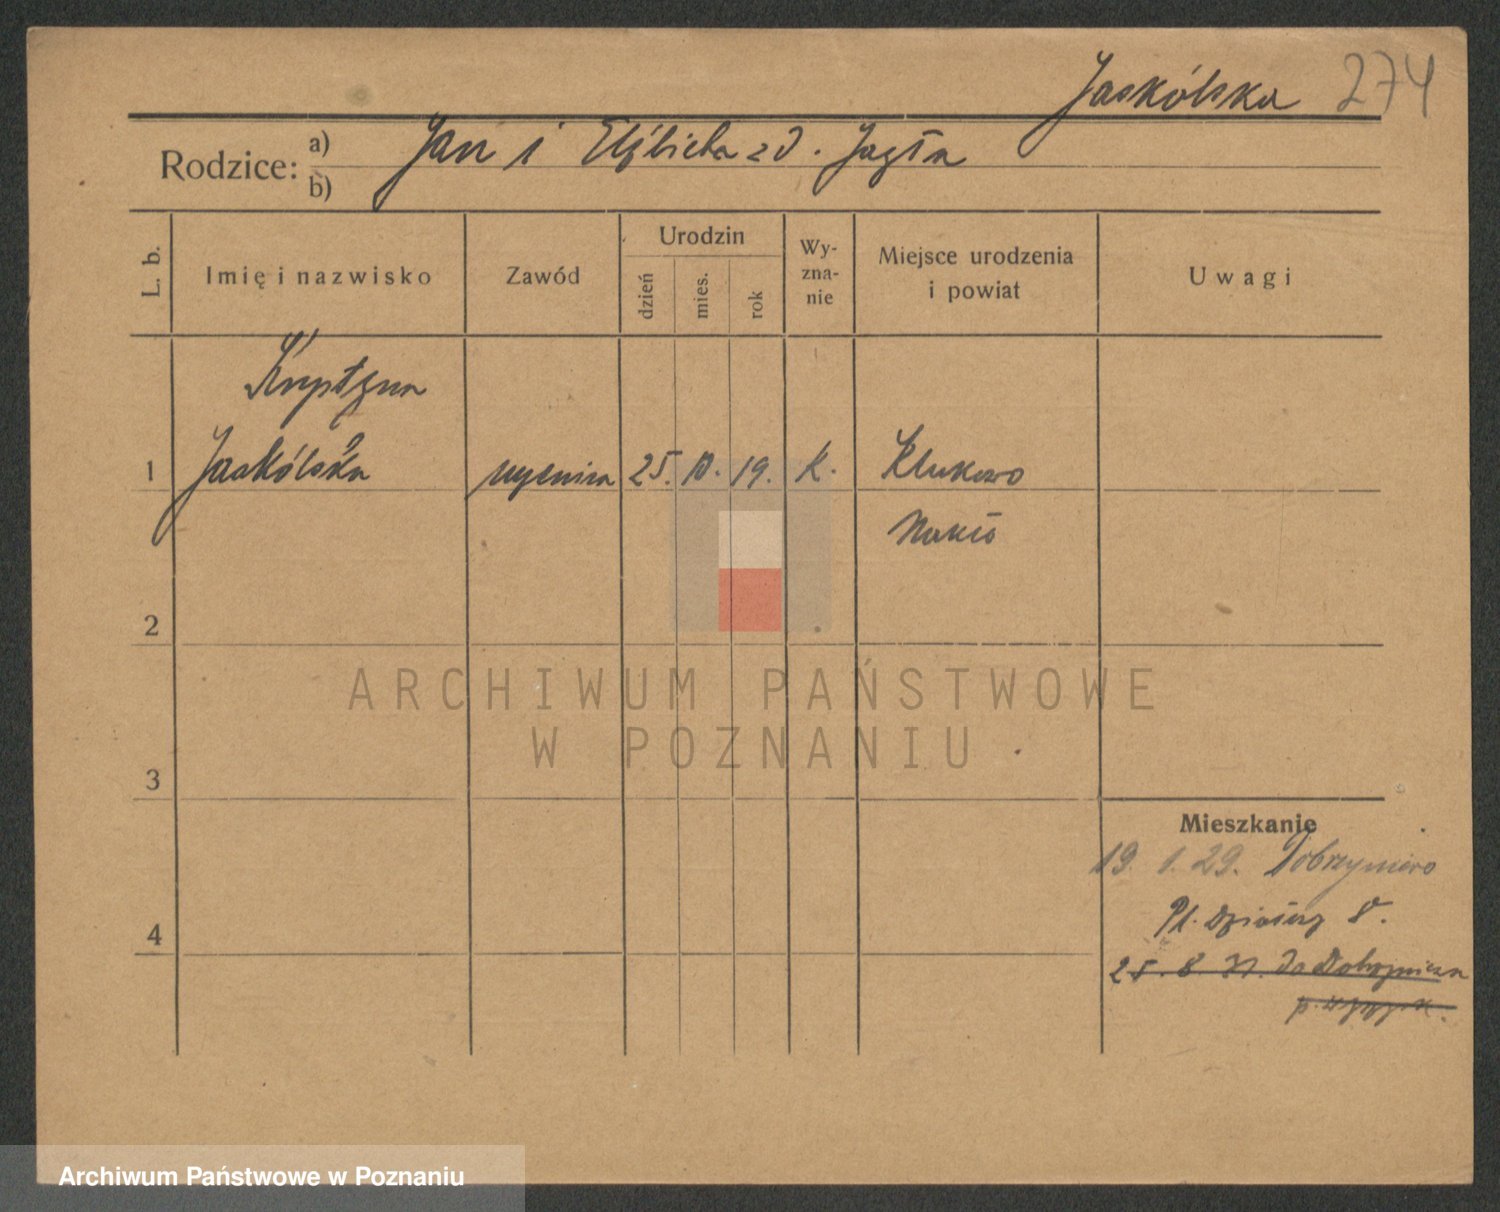 Jaskólska 274
Rodzice: a) Jan i Elżbieta z d. Jagła
b)
L. b.
Imię i nazwisko
Zawód
Urodzin
dzień
mies.
rok
Wy-
zna-
nie
Miejsce urodzenia
i powiat
Uwagi
Krystyna
1 Jaskólska uczenica 25. 10. 19. k. Klukowo
Nakło
2
ARCHIWUM PAŃSTWOWE
W POZNANIU
3
Mieszkanie
19. 1. 29. Dobrzyniewo
Pl. Działowy 8.
4
25. 8 31. do
p.
Archiwum Państwowe w Poznaniu